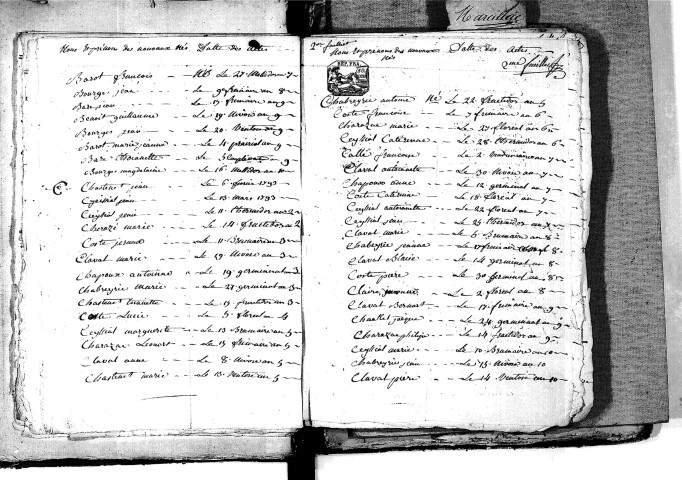 Noms et prénoms des nouveaux Nés Date des Actes
Barot françois Nés Le 27 Messidor 7
Bourge jean Le 9 frimaire an 8
Bas jean Le 19 frimaire an 9
Benoit guillaume Le 19 Nivose an 9
Bourge jean Le 20 Ventose 9
Barot marie jeanne Le 4 prairial an 9
Bourge magdelaine Le 16 Messidor an 10
Chastenet jean Le 6 fevrier 1793
Ceyssial jean Le 13 mars 1793
Ceyssial jeune Le 11 thermidor an 2
Charazé marie Le 14 fructidor an 2
Coste Le 11 Brumaire an 3
Claval marie Le 19 Nivose an 3
Chapoux antoinne Le 19 germinal an 3
Chabreyrie marie Le 27 germinal an 3
Chastenet Le 19 fructidor an 3
Coste Lucie Le 5 floreal an 4
Ceyssial marguerite Le 13 Brumaire an 5
Charazac Leonard Le 15 frimaire an 5
Claval anne Le 8 Nivose an 5
Chastenet marie Le 13 Ventose an 5
Marcillac
2me feuillet
Noms et prénoms des nouveaux Nés Date des Actes
2me feuillet
REP. FRA.
Chabreyrie antoine Né Le 22 fructidor an 5
Coste francoise Le 7 frimaire an 6
Charazac marie Le 27 floreal an 6
Ceyssial Catherinne Le 28 thermidor an 6
Tallé francoise Le 2 Vendemiaire an 7
Claval antoinette Le 30 Nivose an 7
Chapoux anne Le 12 germinal an 7
Coste Catherinne Le 18 floreal an 7
Ceyssial antoinette Le 22 floreal an 7
Ceyssial jean Le 25 thermidor an 7
Claval marie Le 6 Brumaire an 8
Chabreyrie jeanne Le 17 frimaire an 8
Claval Blaise Le 14 germinal an 8
Coste pierre Le 30 germinal an 8
Claire Le 2 floreal an 8
Claval Bernard Le 17 frimaire an 9
Chastel jacque Le 24 germinal an 9
Charazac philipe Le 14 fructidor an 9
Ceyssial marie Le 10 Brumaire an 10
Chabreyrie jean Le 15 Nivose an 10
Claval pierre Le 14 Ventose an 10